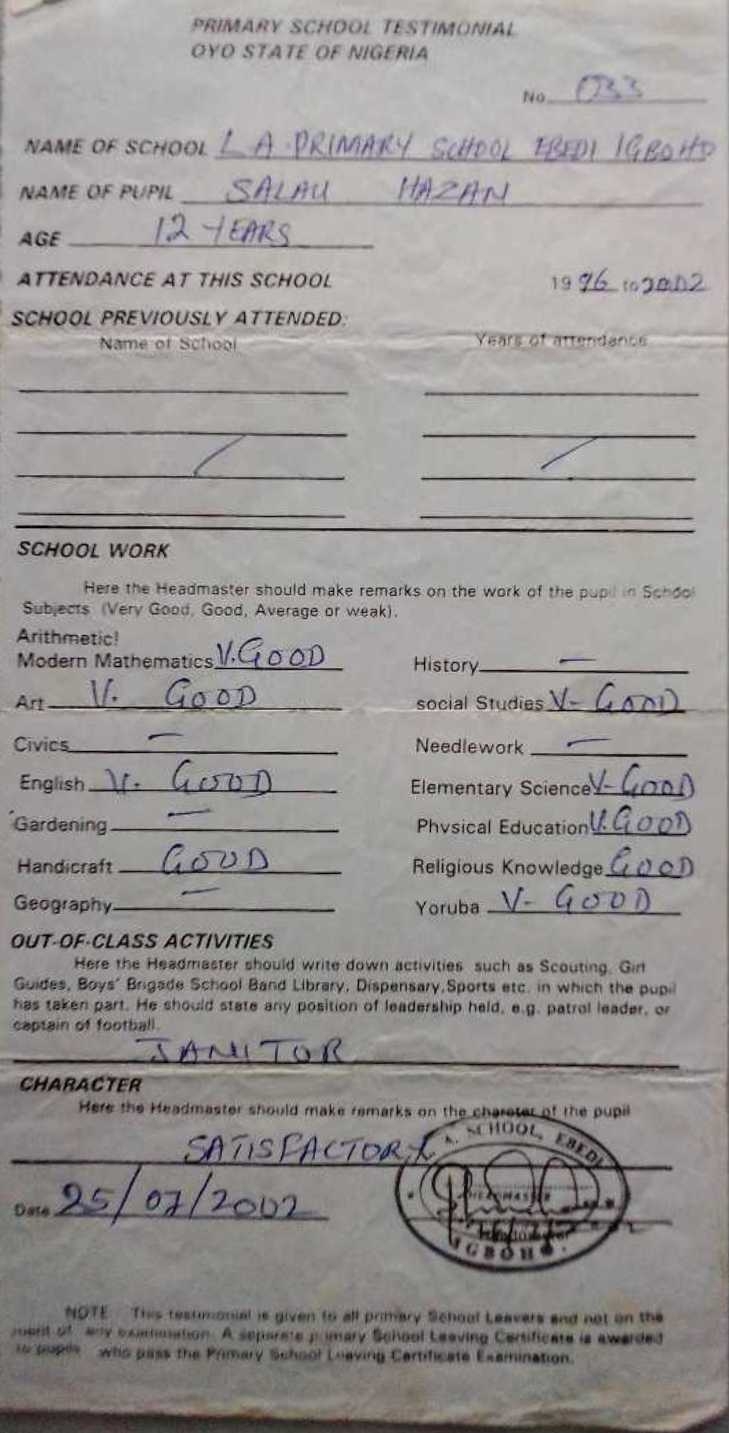 PRIMARY SCHOOL TESTIMONIAL
OYO STATE OF NIGERIA
No. 033
NAME OF SCHOOL L A. PRIMARY SCHOOL EBEDI IGBOHO
NAME OF PUPIL SALAU HAZAN
AGE 12 YEARS
ATTENDANCE AT THIS SCHOOL 1996 to 2002
SCHOOL PREVIOUSLY ATTENDED:
Name of School Years of attendance
SCHOOL WORK
Here the Headmaster should make remarks on the work of the pupil in School
Subjects (Very Good, Good, Average or weak).
Arithmetic!
Modern Mathematics V. GOOD History —
Art V. GOOD social Studies V- GOOD
Civics — Needlework —
English V. GOOD Elementary Science V- GOOD
Gardening — Physical Education V. GOOD
Handicraft GOOD Religious Knowledge GOOD
Geography — Yoruba V- GOOD
OUT-OF-CLASS ACTIVITIES
Here the Headmaster should write down activities such as Scouting, Girl
Guides, Boys' Brigade School Band Library, Dispensary, Sports etc. in which the pupil
has taken part. He should state any position of leadership held, e.g. patrol leader, or
captain of football.
JANITOR
CHARACTER
Here the Headmaster should make remarks on the charater of the pupil
SATISFACTORY
SCHOOL, EBEDI
HEADMASTER
IGBOHO.
Date 25/07/2002
NOTE This testimonial is given to all primary School Leavers and not on the
merit of any examination. A separate primary School Leaving Certificate is awarded
to pupils who pass the Primary School Leaving Certificate Examination.